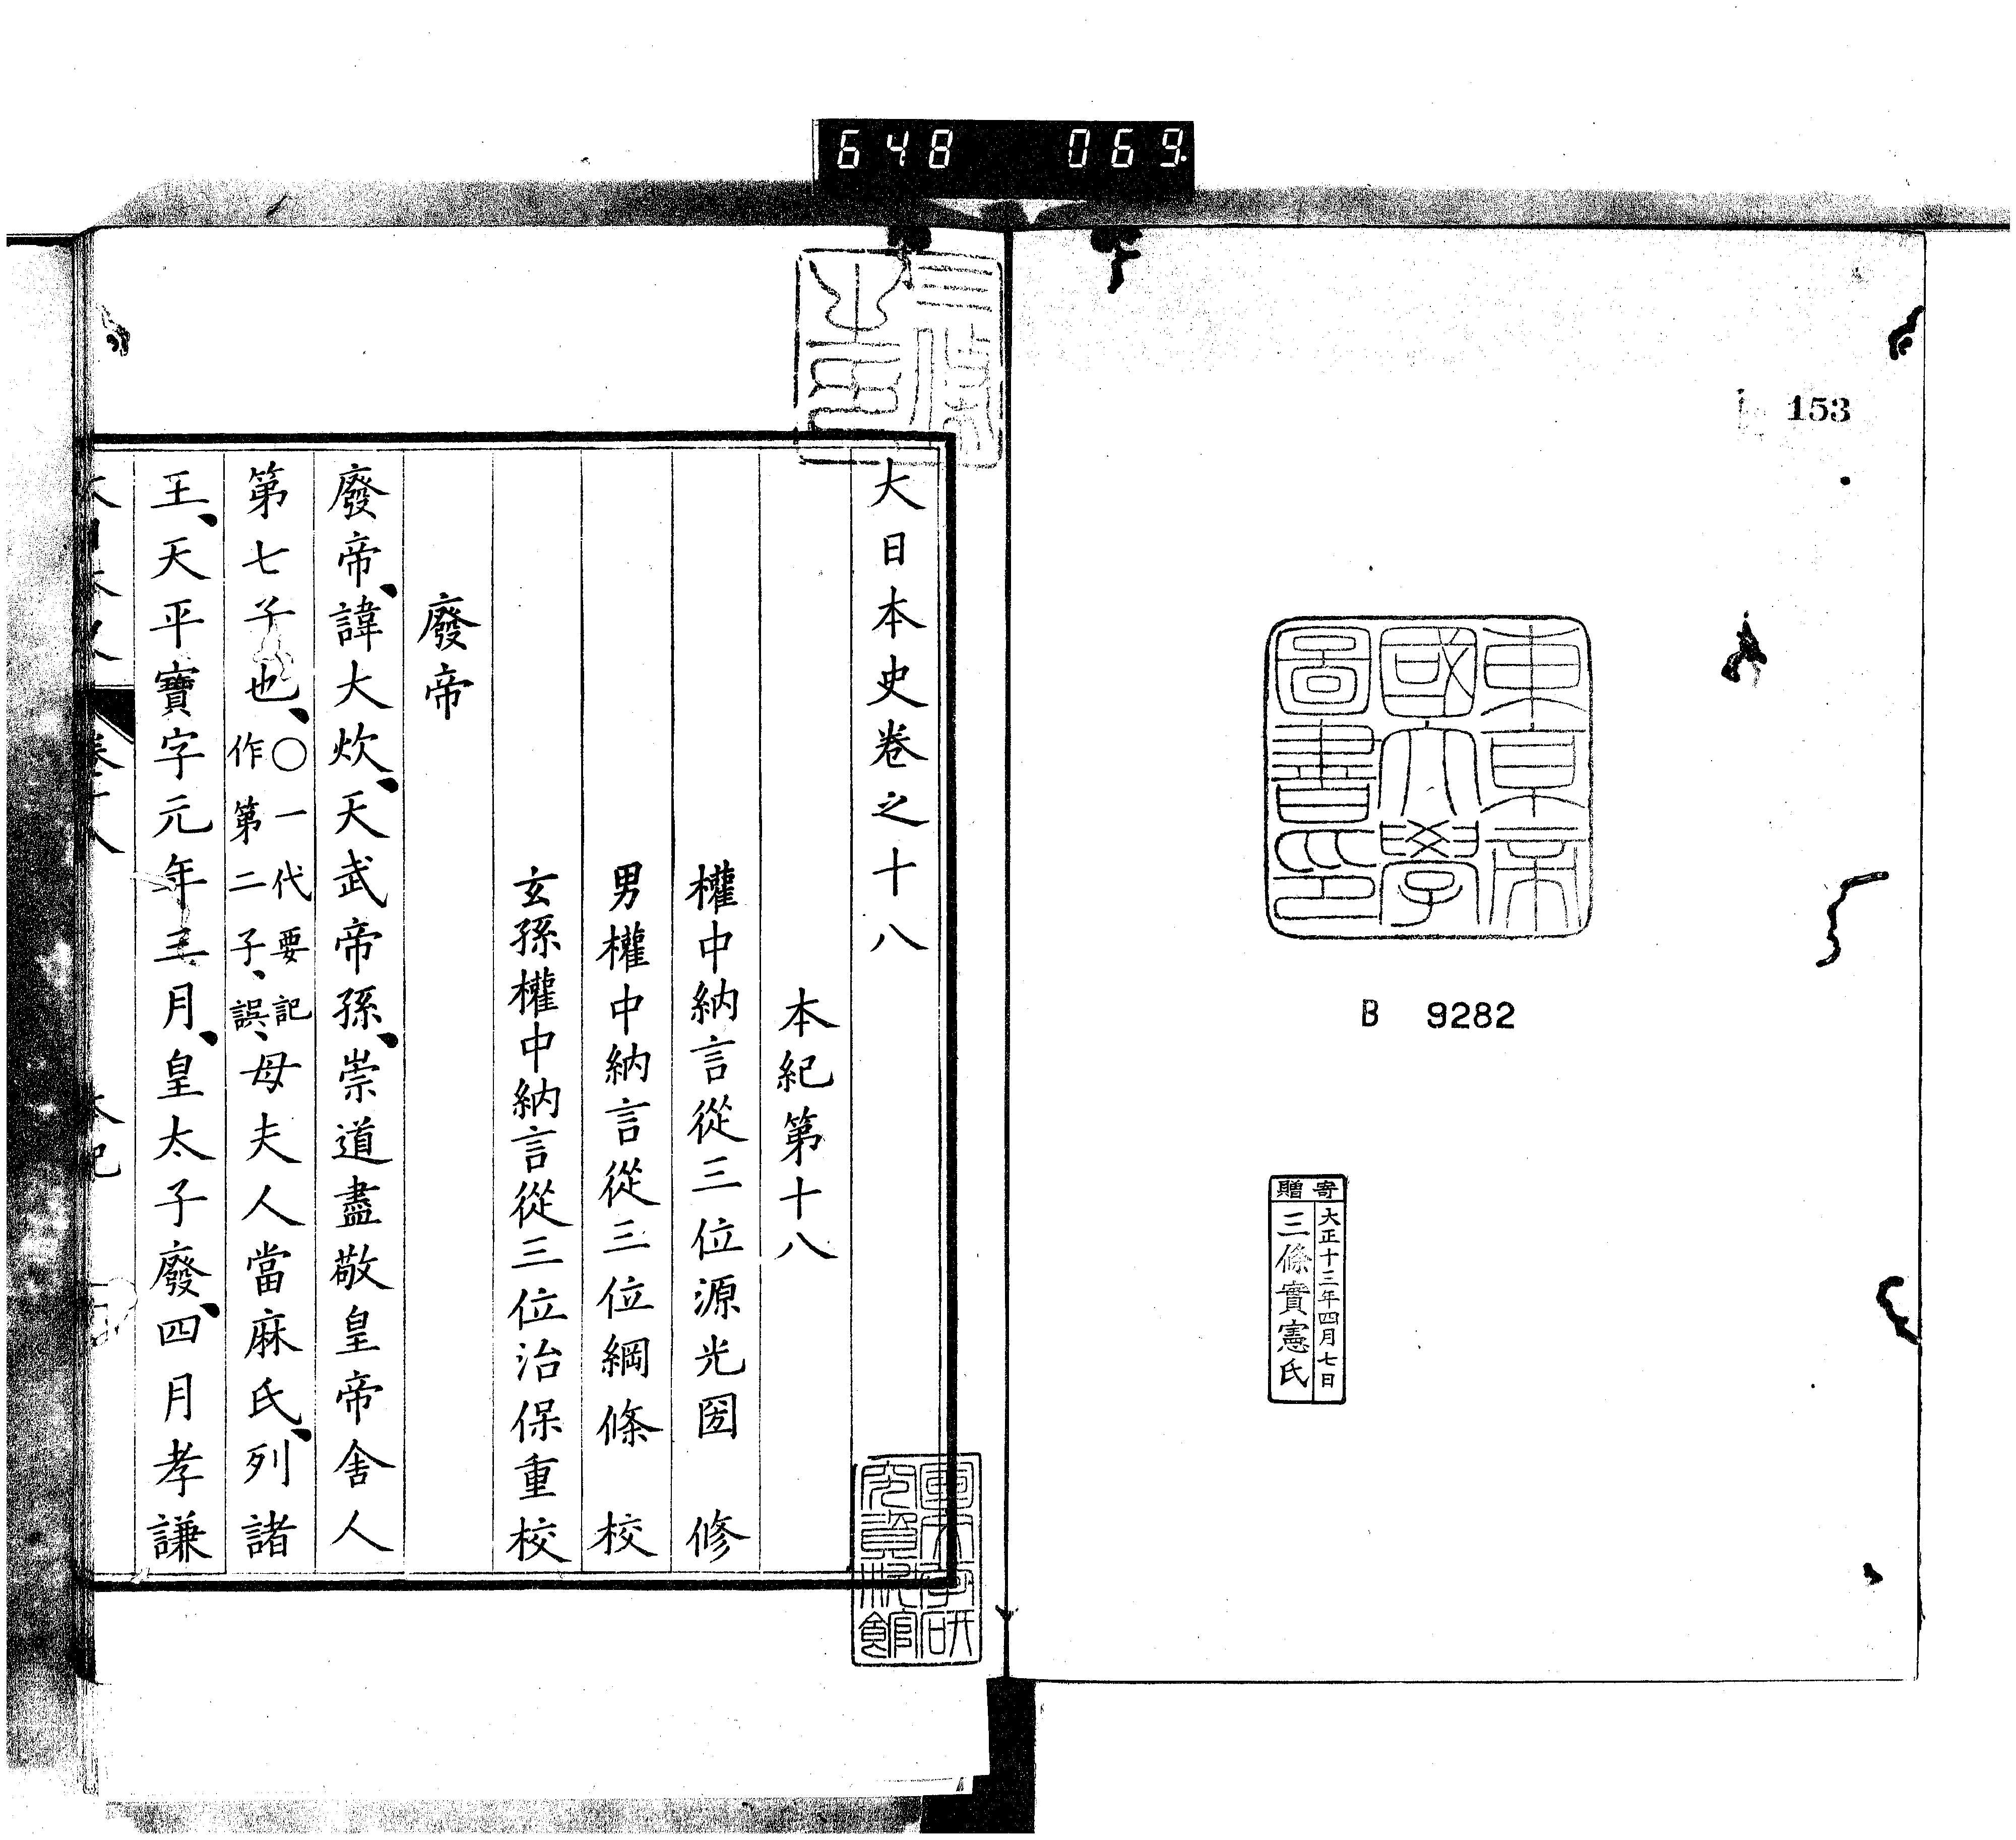 648 069
153
東京帝
國大學
圖書印
B 9282
寄贈
大正十三年四月七日
三條實憲氏
大日本史卷之十八
本紀第十八
權中納言從三位源光圀 修
男權中納言從三位綱條 校
玄孫權中納言從三位治保重校
廢帝
廢帝、諱大炊、天武帝孫、崇道盡敬皇帝舍人
第七子也、〇一代要記
作第二子、誤、母夫人當麻氏、列諸
王、天平寶字元年三月、皇太子廢、四月孝謙